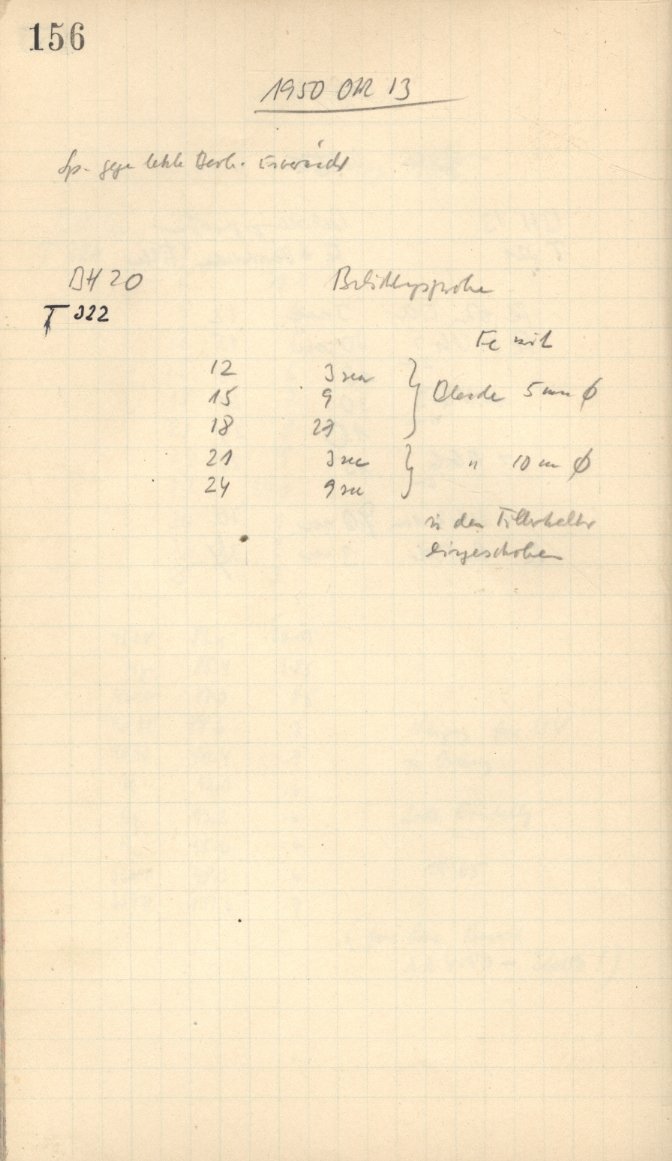 156
1950 Okt 13
Sp. gegen letzte Beob.
BH 20 Belichtungsprobe
T 322
Fe mit
12 3 sec } Blende 5 mm ϕ
15 9
18 27
21 3 sec } " 10 mm ϕ
24 9 sec
in den Filterhalter
eingeschoben